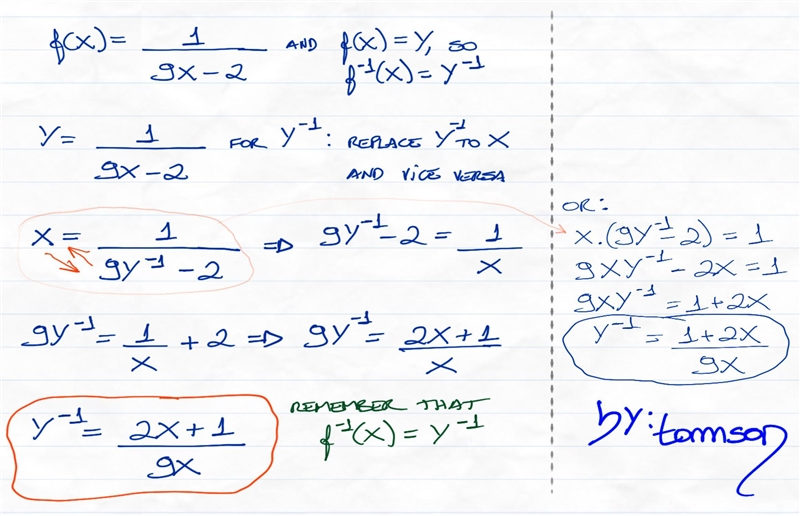 f(x) = 1/(9x-2) AND f(x) = Y, SO
f⁻¹(x) = Y⁻¹
Y = 1/(9x-2) FOR Y⁻¹: REPLACE Y⁻¹ TO X
AND VICE VERSA
X = 1/(9Y⁻¹ - 2) ⇒ 9Y⁻¹ - 2 = 1/X
9Y⁻¹ = 1/X + 2 ⇒ 9Y⁻¹ = (2X+1)/X
Y⁻¹ = (2X+1)/9X
REMEMBER THAT
f⁻¹(x) = Y⁻¹
OR:
X.(9Y⁻¹-2) = 1
9XY⁻¹ - 2X = 1
9XY⁻¹ = 1+2X
Y⁻¹ = (1+2X)/9X
by: tomson